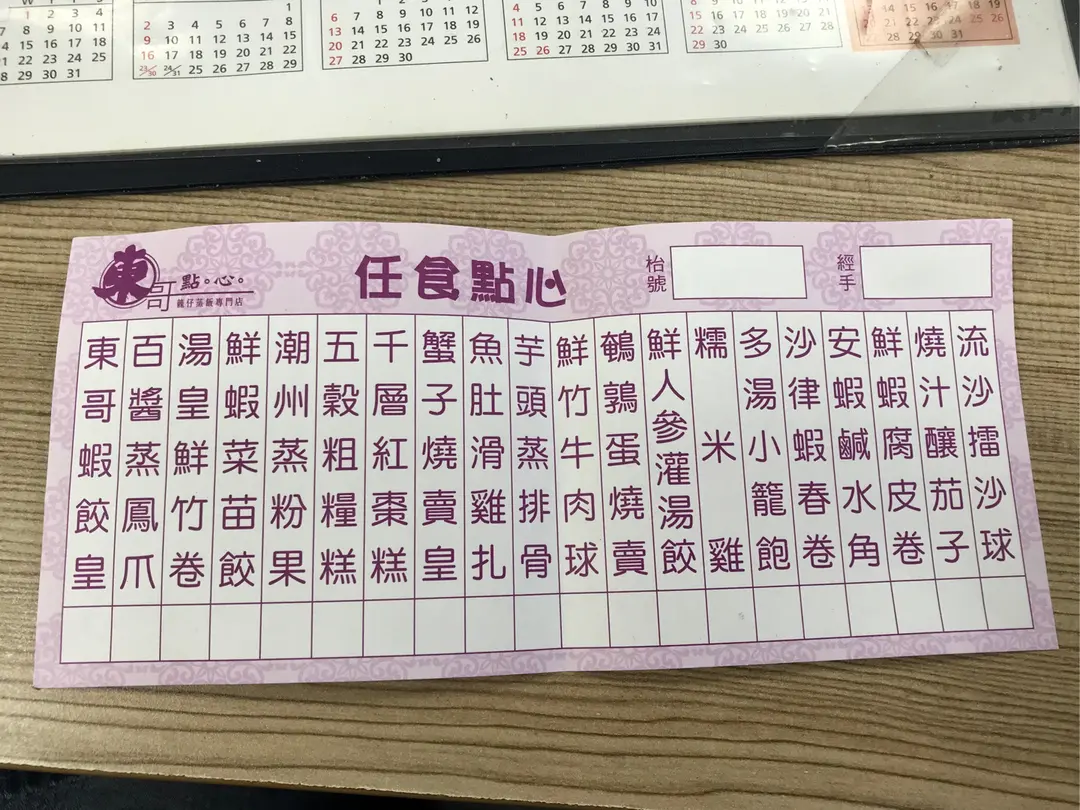 1 2 3 4
8 9 10 11
15 16 17 18
22 23 24 25
28 29 30 31
1
2 3 4 5 6 7 8
9 10 11 12 13 14 15
16 17 18 19 20 21 22
23/30 24/31 25 26 27 28 29
1 2 3 4 5
6 7 8 9 10 11 12
13 14 15 16 17 18 19
20 21 22 23 24 25 26
27 28 29 30
4 5 6 7 8 9 10
11 12 13 14 15 16 17
18 19 20 21 22 23 24
25 26 27 28 29 30 31
15 16 17 18 19 20 21
22 23 24 25 26 27 28
29 30
東哥點。心。
籠仔蒸飯專門店
任食點心
枱號
經手
東哥蝦餃皇
百醬蒸鳳爪
湯皇鮮竹卷
鮮蝦菜苗餃
潮州蒸粉果
五穀粗糧糕
千層紅棗糕
蟹子燒賣皇
魚肚滑雞扎
芋頭蒸排骨
鮮竹牛肉球
鵪鶉蛋燒賣
鮮人參灌湯餃
糯米雞
多湯小籠飽
沙律蝦春卷
安蝦鹹水角
鮮蝦腐皮卷
燒汁釀茄子
流沙擂沙球